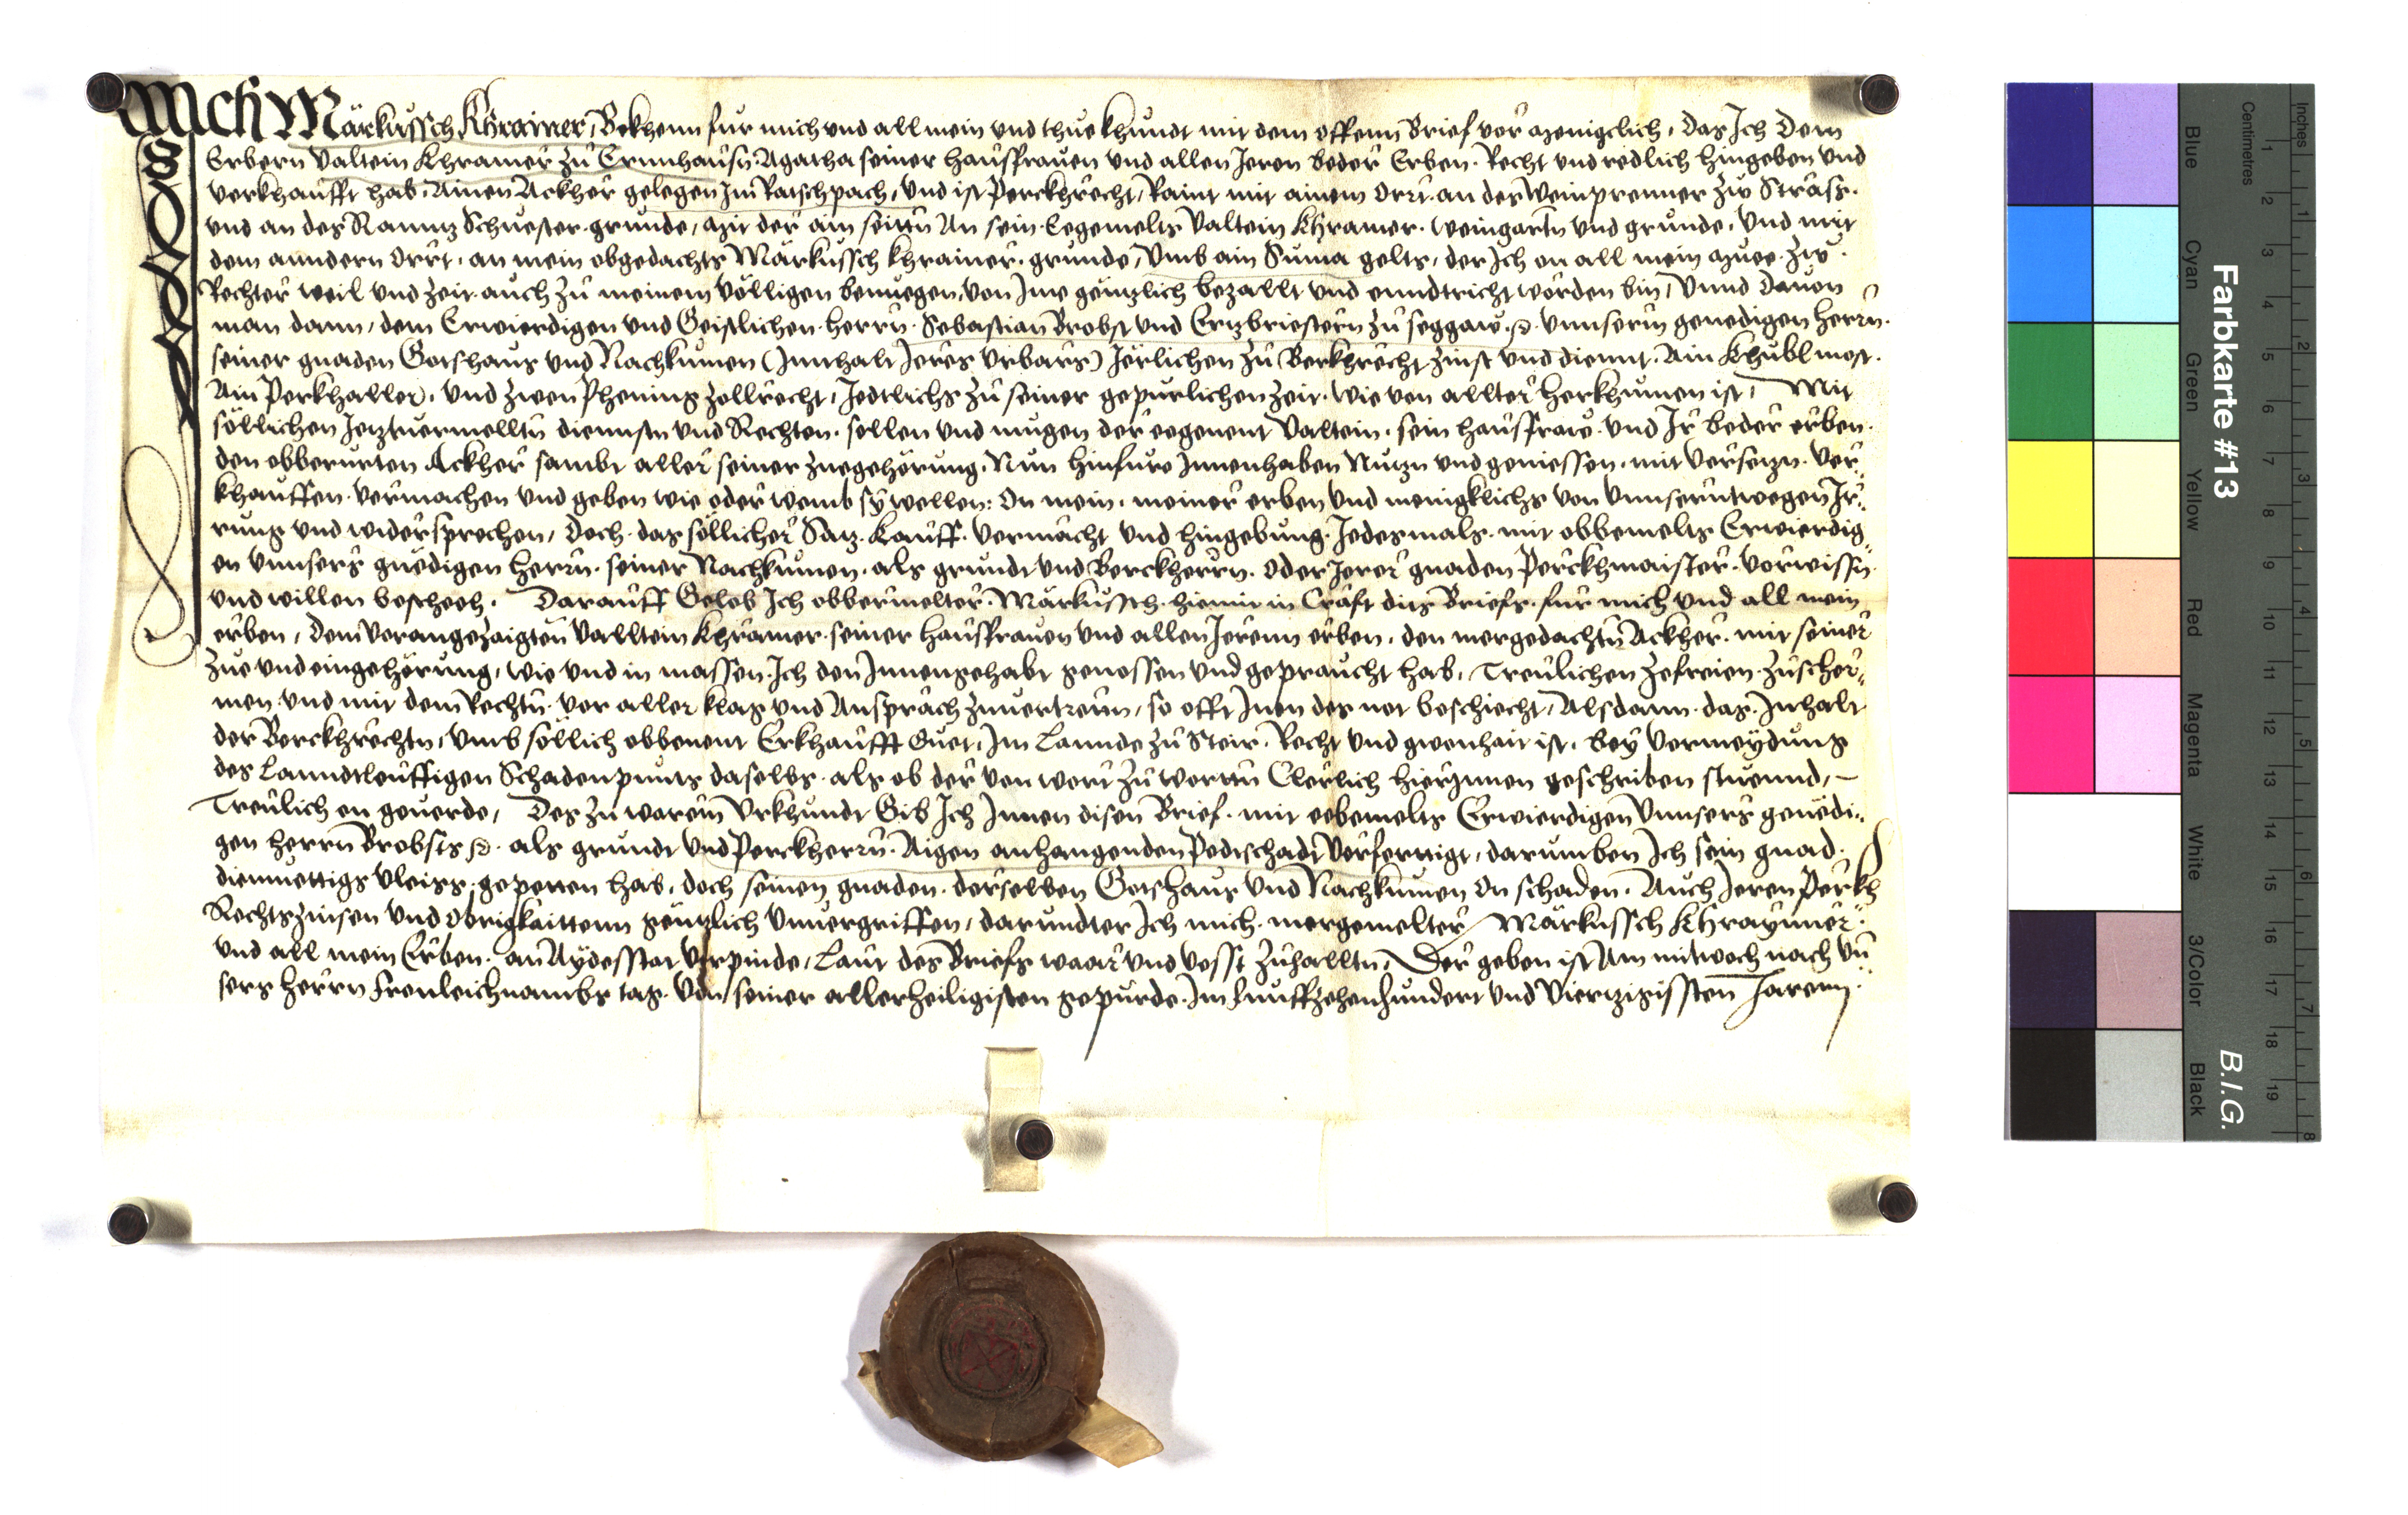 Ich Märkussch Khrainer, Bekhenn fur mich und all mein und thue khundt mit dem offenn Brief vor menigclich, das Ich dem
Erbern Valtein Khramer zu Ernnhausn Agatha seiner hausfrauen und allen Jeren beder Erben. Recht und redlich hingeben und
verkhaufft hab, Ainen Ackher gelegen Im Ratschpach, und ist Perckhrecht, Raint mit ainem Orrt. an der Weinprenner zw Strass.
und an des Schuester grunde, mit der ain seittn An sein Eegemelts Valtein Khramer. weingartn und grunde, Und mit
dem anndern Orrt, an mein obgedachts Märkussch Khrainer. grunde, Umb ain Suma gelts, der Ich on all mein muee zw
Rechter weil und zeit. auch zu meinem völligen benuegen, von Ime gëntzlich bezallt und enndtricht worden bin, Unnd dauon
man dann, dem Erwierdigen und Geistlichen herrn. Sebastian Brobst und Ertzbriestern zu seggaw. unnserm genedigen herrn.
seiner gnaden Gotshaus und Nachkumen (Innhalt Jeres Urbars) Jerlichen zu Berkhrecht zinst und diennt. Ain Khubl most.
Ain Perkhaller, und zwen Phening zollrecht, Jedtlichs zu seiner gepurlichen zeit. wie von allter herkhumen ist, Mit
söllichen Jetztuermelltn diennstn und Rechten. sollen und mugen der eegenent Valtein. sein hausfraw. und Ir beder erben.
den obberurten Ackher sambt aller seiner zuegehörung. Nun hinfuro Innenhaben Nutzn und geniessen. mit versetzn. ver¬
khauffen. vermachen und geben wie oder wemb sy wellen: On mein. meiner erben und menigklichs von unnserntwegen Ir¬
rung und widersprechen, Doch. das söllicher Satz. Kauff. vermächt und hingebung. Jedesmals. mit obbemelts Erwierdig¬
en unnsers gnëdigen herrn. seiner Nachkumen. als grundt und Berckherrn. oder Jerer gnaden Perckhmaister. vorwissn
und willen bescheeh. Darauff Gelob Ich obbermelter. Märkussch. hiemit in Craft dits Briefs. fur mich und all mein
erben, dem vorangezaigten Valltein Khramer. seiner hausfrauen und allen Jerenn erben. den mergedachtn Ackher. mit seiner
zue und eingehörung, wie und in massen. Ich den Innengehabt genossen und gepraucht hab, Treulichen zefreien. zuscher¬
men und mit dem Rechtn. vor aller klag und Ansprach zuuertretn, so offt Inen des not beschiecht, Alsdann. das. Inhalt
der Berckhrechtn, Umb söllich obbenent Erkhaufft Guet, Im Lannde zu Steir. Recht und gwonhait ist. bey vermeydung
des Lanndtleuffigen Schadenpunts daselbs. als ob der von wort zu worttn Clerlich hierinnen geschriben stuennd,
Treulich on geuerde, Des zu warem Urkhundt Gib Ich Innen disen Brief. mit eebemelts Erwierdigen Unnsers genëdi¬
gen herrn Brobsts als grundt und Perckherrn. Aigen anhangenden Pedtschadt verferttigt, darumben Ich sein gnad.
diemuettigs vleiss gepetten hab, doch seinen gnaden. derselben Gotshaus und Nachkumen on schaden. Auch Jeren Perkh
Rechts zinsen und Obrigkaittenn gëntzlich unuergriffen, darundter Ich mich. mergemelter Märkussch Khraynner.
und all mein Erben. an Aydesstat verpinde, Laut des Briefs waar und vesst zuhalltn, Der geben ist Am mitwoch nach un
sers herrn Fronleichnambs tag. von seiner allerheiligisten gepurde. Im funffzehenhundert und viertzigissten Jarenn.
Farbkarte #13
B.I.G.
Inches
Centimetres
Blue
Cyan
Green
Yellow
Red
Magenta
White
3/Color
Black
1 2 3 4 5 6 7 8 9 10 11 12 13 14 15 16 17 18 19
1 2 3 4 5 6 7 8